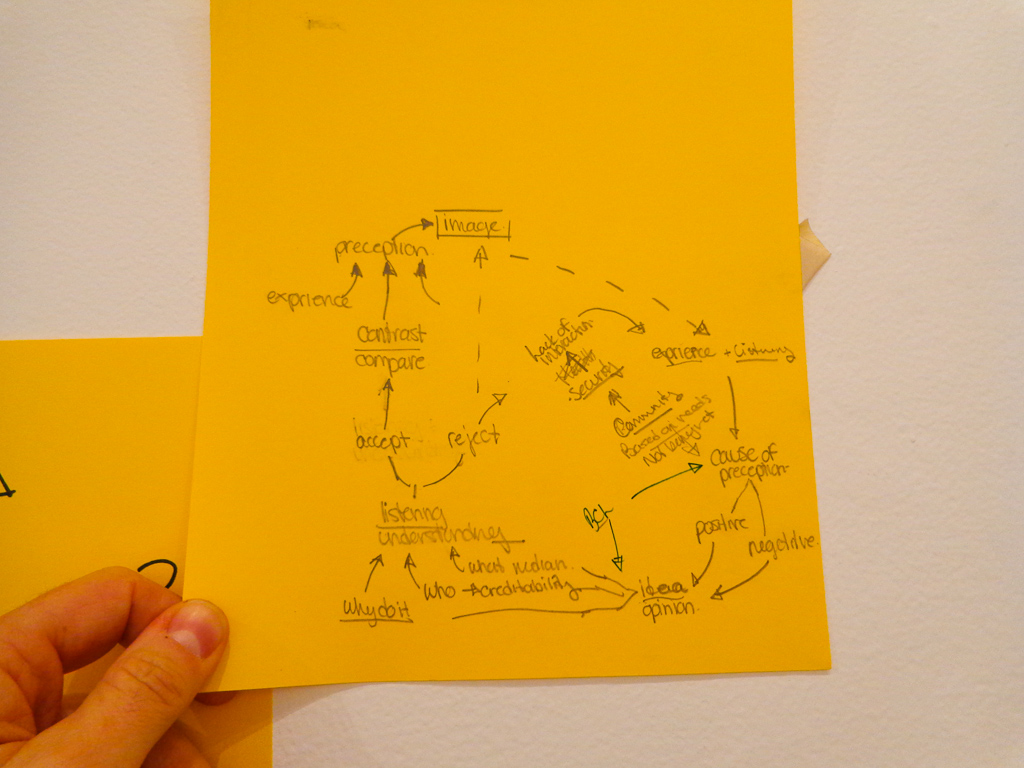 image
preception
exprience
contrast
compare
Lack of
interaction
security
exprience + Listning
Community
Based on needs
Not
accept
reject
cause of
preception
listening
understanding
positive
negative
what median
who → creditability
idea
opinion
why do it